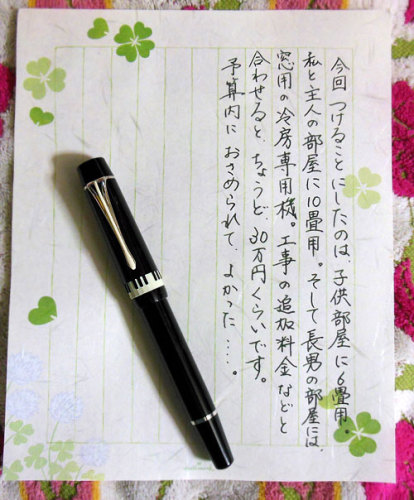 今回つけることにしたのは、子供部屋に6畳用。
私と主人の部屋に10畳用。そして長男の部屋には、
窓用の冷房専用機。工事の追加料金などと
合わせると、ちょうど、30万円くらいです。
予算内におさめられて、よかった‥‥。